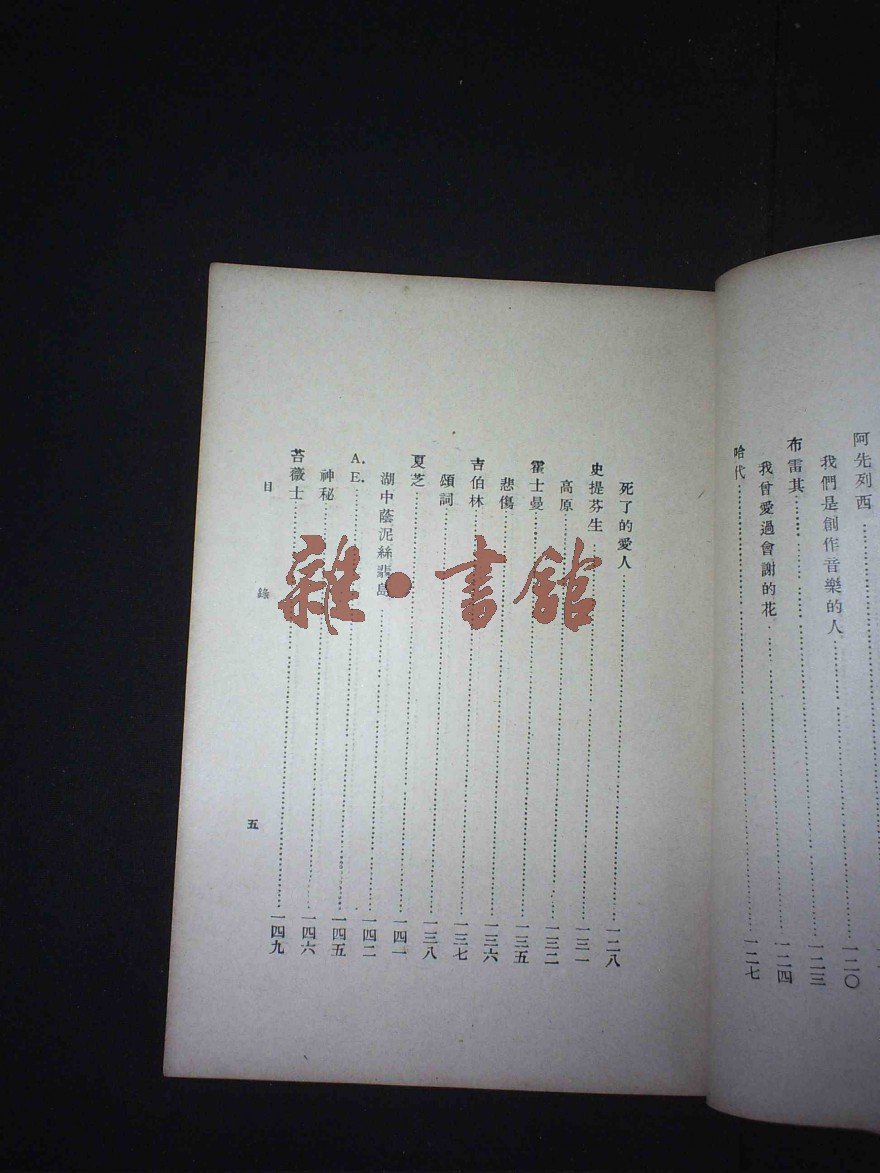 阿先列西
我們是創作音樂的人……一二〇
布雷其……一二三
我曾愛過會謝的花……一二四
哈代……一二七
死了的愛人……一二八
史提芬生……一三一
高原……一三二
霍士曼……一三五
悲傷……一三六
吉伯林……一三七
頌詞……一三八
夏芝……一四一
湖中蔭泥絲翡島……一四二
A．E．……一四五
神秘……一四六
苔薇士……一四九
目 錄 五
雜·書館